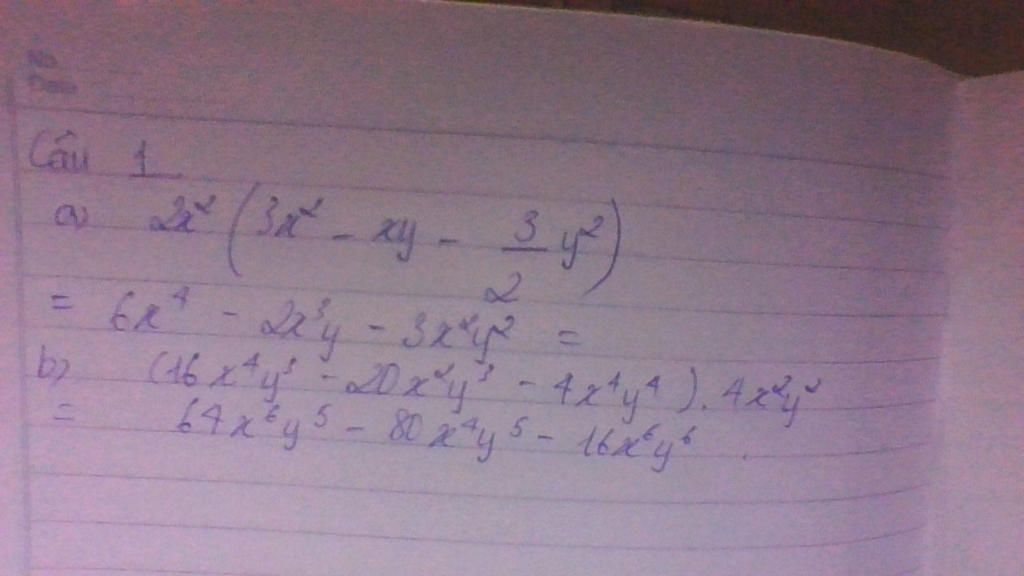 No
Date
Câu 1
a) 2x² (3x² - xy - 3/2 y²)
= 6x⁴ - 2x³y - 3x²y² =
b) (16x⁴y³ - 20x²y³ - 4x⁴y⁴). 4x²y²
= 64x⁶y⁵ - 80x⁴y⁵ - 16x⁶y⁶.